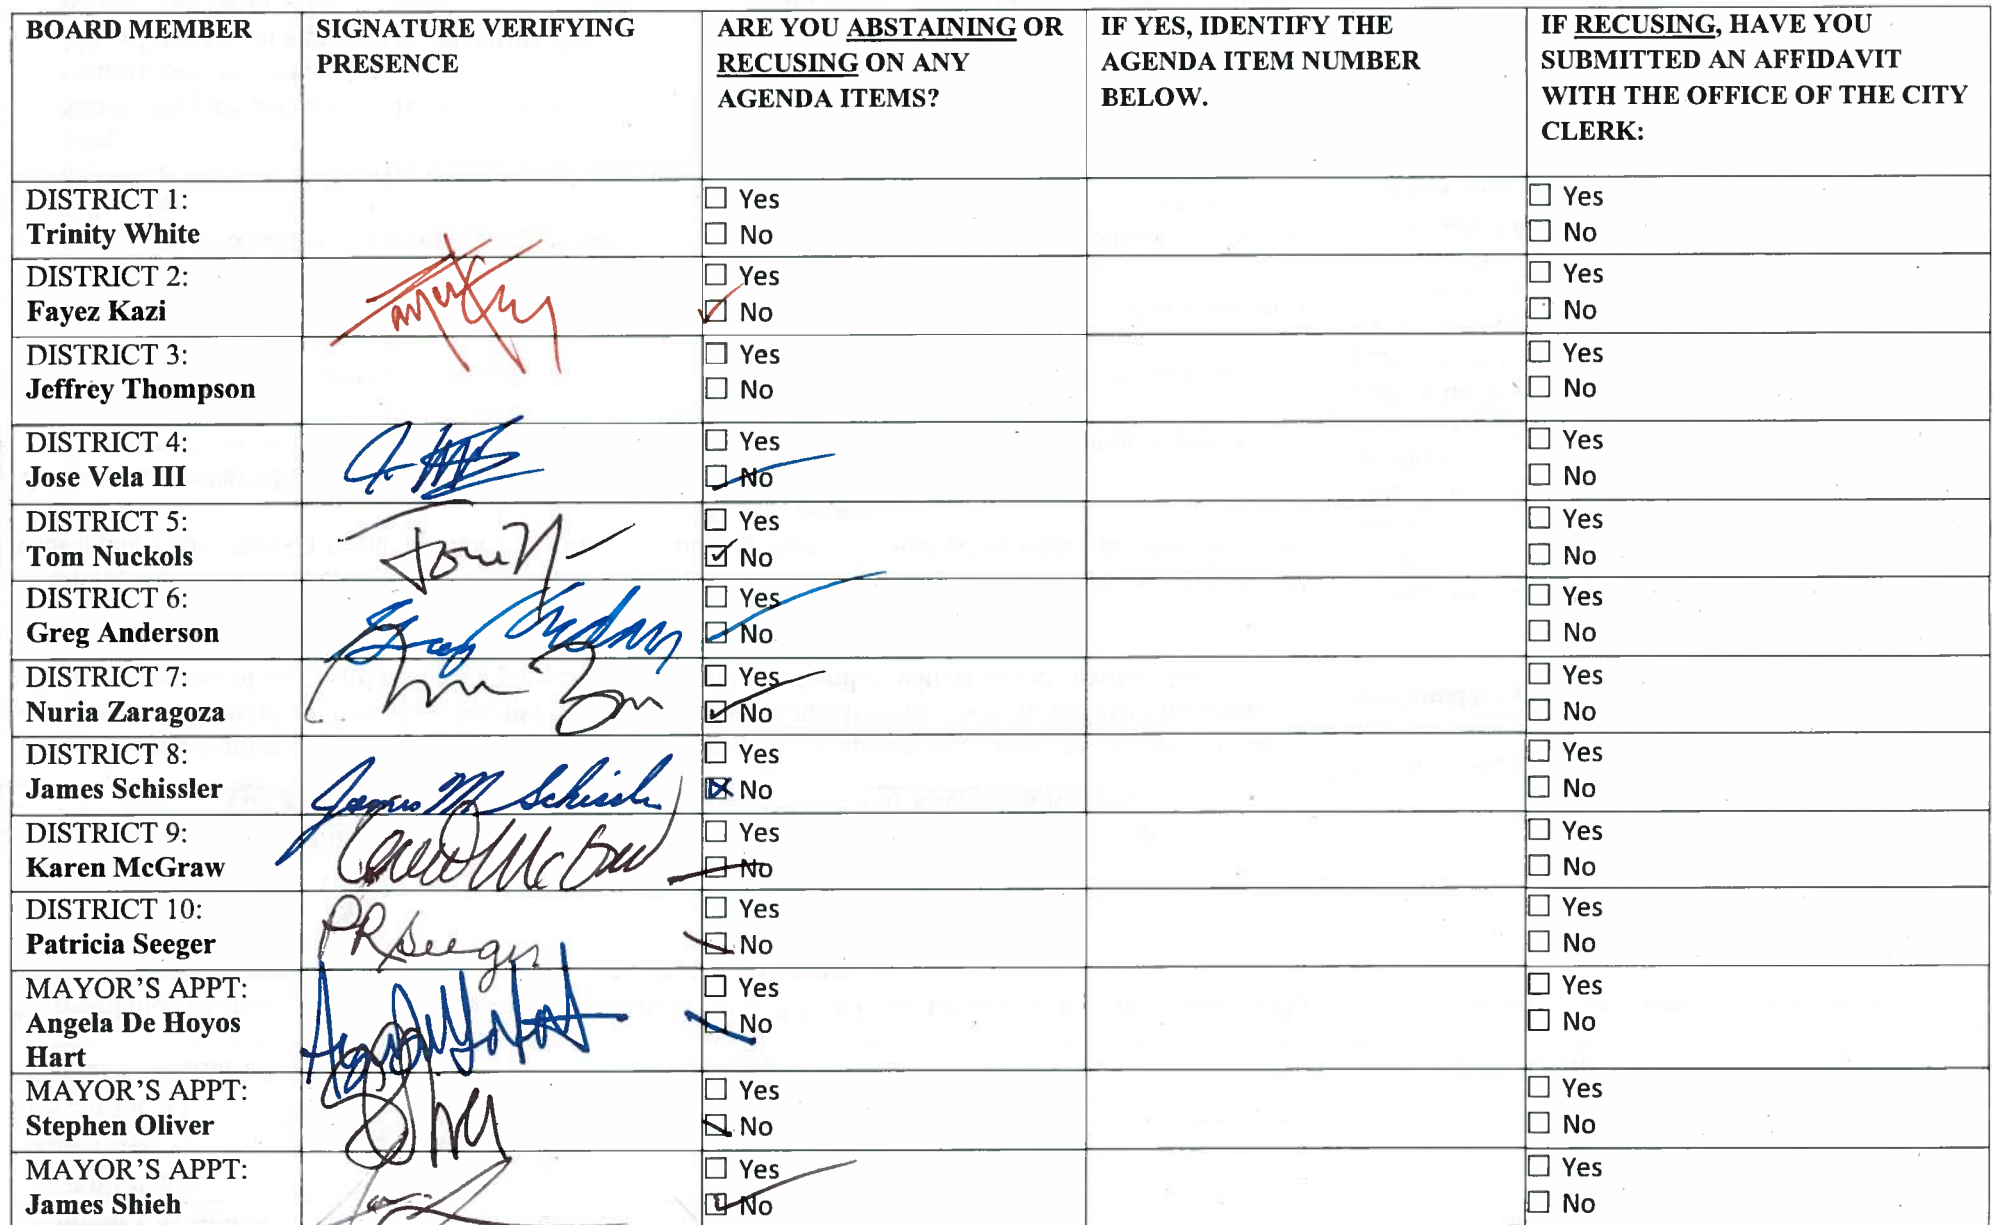 BOARD MEMBER
SIGNATURE VERIFYING
PRESENCE
ARE YOU ABSTAINING OR
RECUSING ON ANY
AGENDA ITEMS?
IF YES, IDENTIFY THE
AGENDA ITEM NUMBER
BELOW.
IF RECUSING, HAVE YOU
SUBMITTED AN AFFIDAVIT
WITH THE OFFICE OF THE CITY
CLERK:
DISTRICT 1:
Trinity White
☐ Yes
☐ No
☐ Yes
☐ No
DISTRICT 2:
Fayez Kazi
☐ Yes
☑ No
☐ Yes
☐ No
DISTRICT 3:
Jeffrey Thompson
☐ Yes
☐ No
☐ Yes
☐ No
DISTRICT 4:
Jose Vela III
☐ Yes
☑ No
☐ Yes
☐ No
DISTRICT 5:
Tom Nuckols
Tom N
☐ Yes
☑ No
☐ Yes
☐ No
DISTRICT 6:
Greg Anderson
Greg Anderson
☐ Yes
☑ No
☐ Yes
☐ No
DISTRICT 7:
Nuria Zaragoza
☐ Yes
☑ No
☐ Yes
☐ No
DISTRICT 8:
James Schissler
James M Schissler
☐ Yes
☒ No
☐ Yes
☐ No
DISTRICT 9:
Karen McGraw
Karen McGraw
☐ Yes
☑ No
☐ Yes
☐ No
DISTRICT 10:
Patricia Seeger
PR Seeger
☐ Yes
☑ No
☐ Yes
☐ No
MAYOR'S APPT:
Angela De Hoyos
Hart
☐ Yes
☑ No
☐ Yes
☐ No
MAYOR'S APPT:
Stephen Oliver
☐ Yes
☑ No
☐ Yes
☐ No
MAYOR'S APPT:
James Shieh
☐ Yes
☑ No
☐ Yes
☐ No